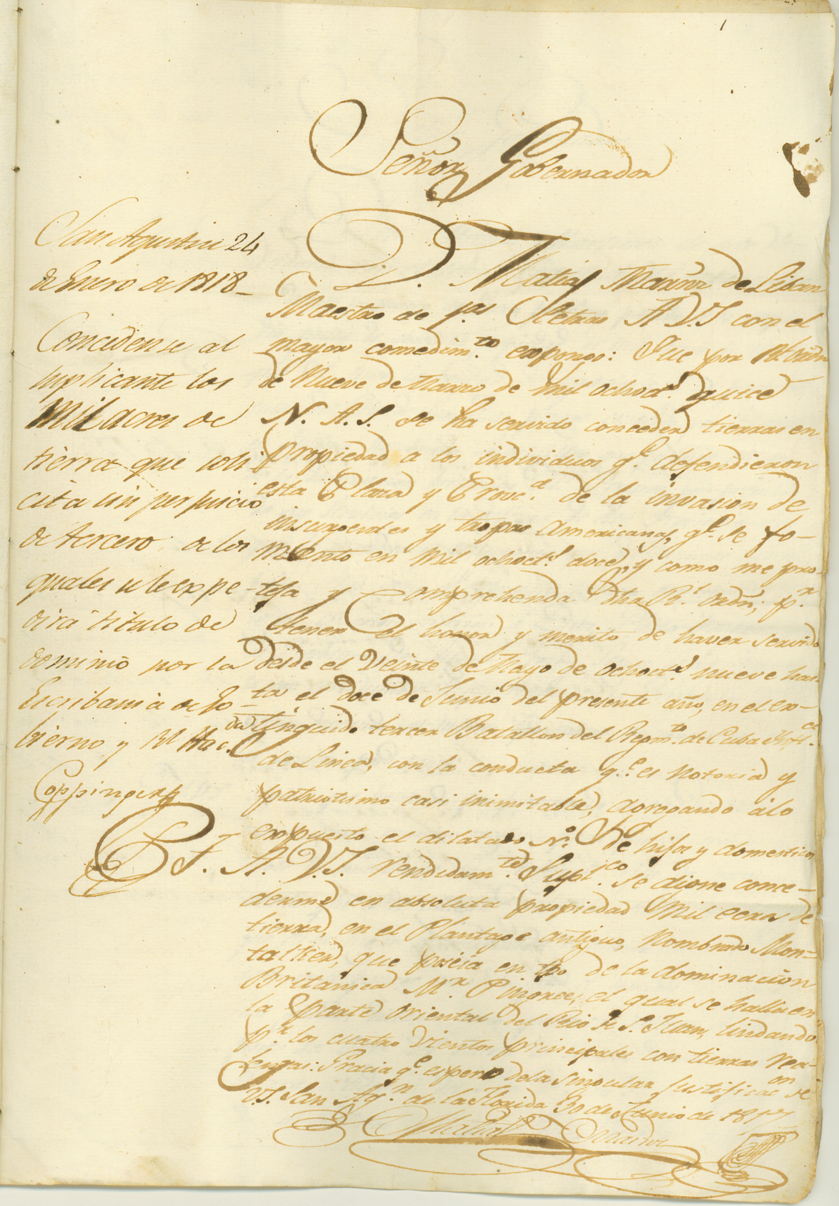 1
Señor Gobernador
San Agustin 24
de Enero de 1818
Concedense al
suplicante los
mil acres de
tierra que soli
cita sin perjuicio
de tercero, de los
quales se le expe-
dirá titulo de
dominio por la
Escribania de Go-
bierno y Rl. Hacda.
Coppinger
D. Matias de
Maestro de A V.S con el
mayor comedimto. expongo: Que por Rl. orden
de Nueve de Marzo de Mil ochos. quice
N. A. S. se ha servido conceder tierras en
propiedad a los individuos qe. defendieron
esta Plaza y Prova. de la invasion de
insurgentes y tropas Americanas qe. se fo-
mento en Mil ochocts. doce, y como me pro-
tesa y comprehenda dha Rl. ordn, pr.
tener el honor y merito de haver servido
desde el Veinte de Mayo de ochocts. nueve has
ta el doce de Junio del presente año, en el ex-
tinguido tercer Batallon del Regmto. de Cuba
de Linea, con la conducta qe. es notoria y
patriotismo casi inimitable, agregando á lo
expuesto el dilatado No. de hijos y domesticos
Pr. T. A V.S. rendidamte. Suplico. se digne conce-
derme en absoluta propiedad Mil de
tierra, en el Plantage antiguo, Nombrado Mon-
que poseia en tpo de la dominacion
Britanica Mr. el qual se halla en
la parte oriental del Rio de Sn. Juan, lindando
pr. los cuatro Vientos principales con tierras Rea-
lengas: Gracia qe. espero de la singular justificaon. de
V.S. San Agn. de la Florida 30 de Junio de 1817
Matias